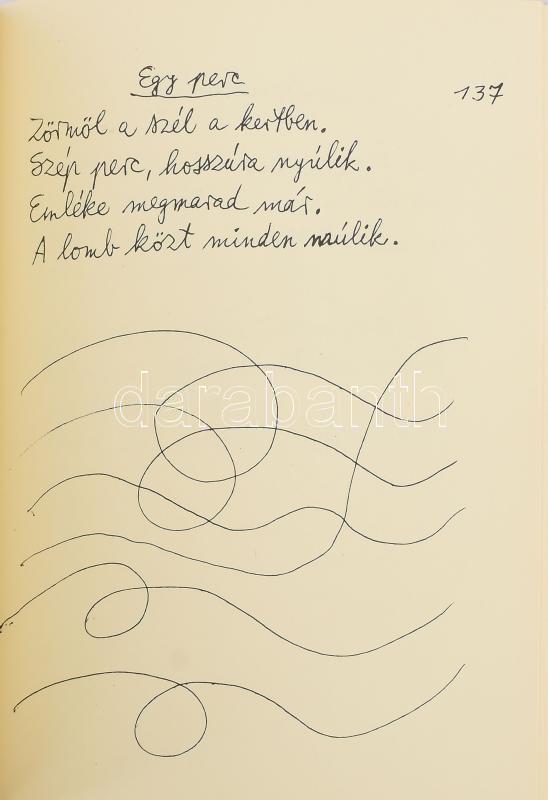 Egy perc
137
Zörmöl a szél a kertben.
Szép perc, hosszúra nyúlik.
Emléke megmarad már.
A lomb közt minden múlik.
darabanth